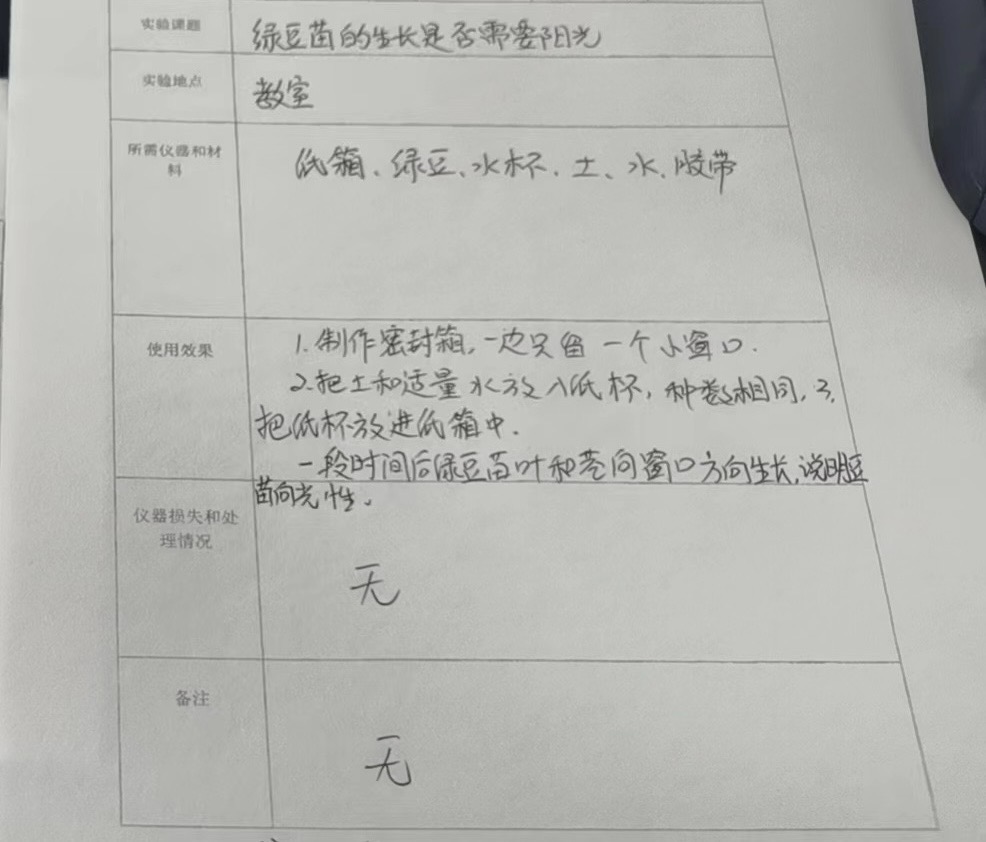 实验课题
绿豆苗的生长是否需要阳光
实验地点
教室
所需仪器和材
料
纸箱、绿豆、水杯、土、水、胶带
使用效果
1.制作密封箱,一边只留一个小窗口.
2.把土和适量水放入纸杯,种数相同,3,
把纸杯放进纸箱中.
一段时间后绿豆苗叶和茎向窗口方向生长,说明豆
苗向光性。
仪器损失和处
理情况
无
备注
无